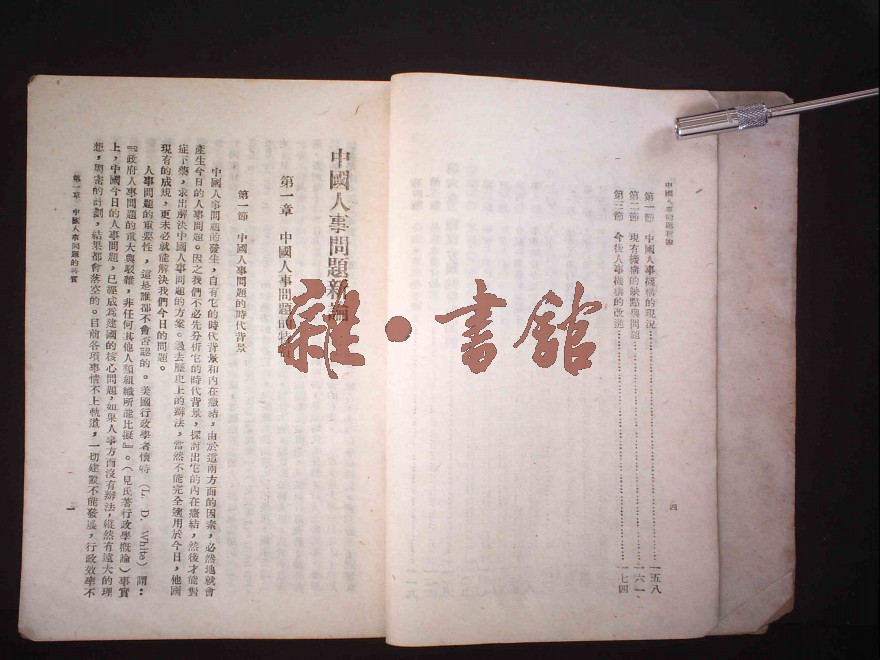 中國人事問題新論
第一節 中國人事機構的現況……一五八
第二節 現有機構的缺點與問題……一六一
第三節 今後人事機構的改進……一七四
四
中國人事問題新論
第一章 中國人事問題的特質
第一節 中國人事問題的時代背景
中國人事問題的發生,自有它的時代背景和內在癥結,由於這兩方面的因素,必然地就會
產生今日的人事問題。因之我們不必先分析它的時代背景,探討出它的內在癥結,然後才能對
症下藥,求出解決中國人事問題的方案。過去歷史上的辦法,當然不能完全適用於今日,他國
現有的成規,更未必就能解決我們今日的問題。
人事問題的重要性,這是誰都不會否認的。美國行政學者懷特(L. D. White)謂:
『政府人事問題的重大與駁雜,非任何其他人類組織所能比擬』。(見氏著行政學概論)事實
上,中國今日的人事問題,已經成為建國的核心問題,如果人事方面沒有辦法,縱然有遠大的理
想,周密的計劃,結果都會落空的。目前各項事情不上軌道,一切建設不能發展,行政效率不
第一章 中國人事問題的特質
一
雜·書館